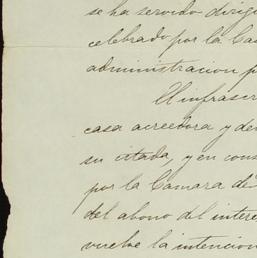 se ha servido dirigi
celebrado por la Ca
administracion p
El infrascr
casa acreedora y de
su citada, y en cons
por la Camara de
del abono del intere
vuelve la intencion